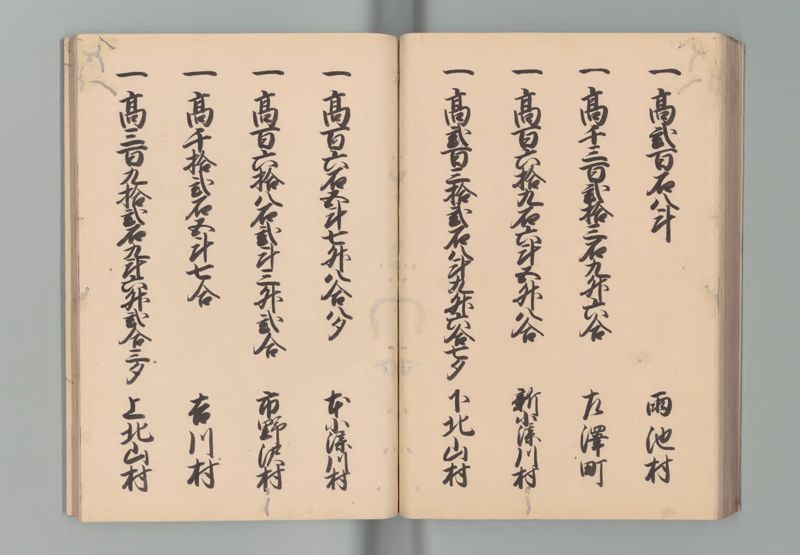 一高弐百石八斗 雨池村
一高千三百弐拾三石九升六合 左澤町
一高百六拾九石六斗五升八合 新小漆川村
一高弐百三拾弐石八斗九升六合七夕 下北山村
一高百六石五斗七升八合八夕 本小漆川村
一高百六拾八石弐斗三升弐合 市野沢村
一高千拾弐石五斗七合 吉川村
一高三百九拾弐石九斗六升弐合三夕 上北山村